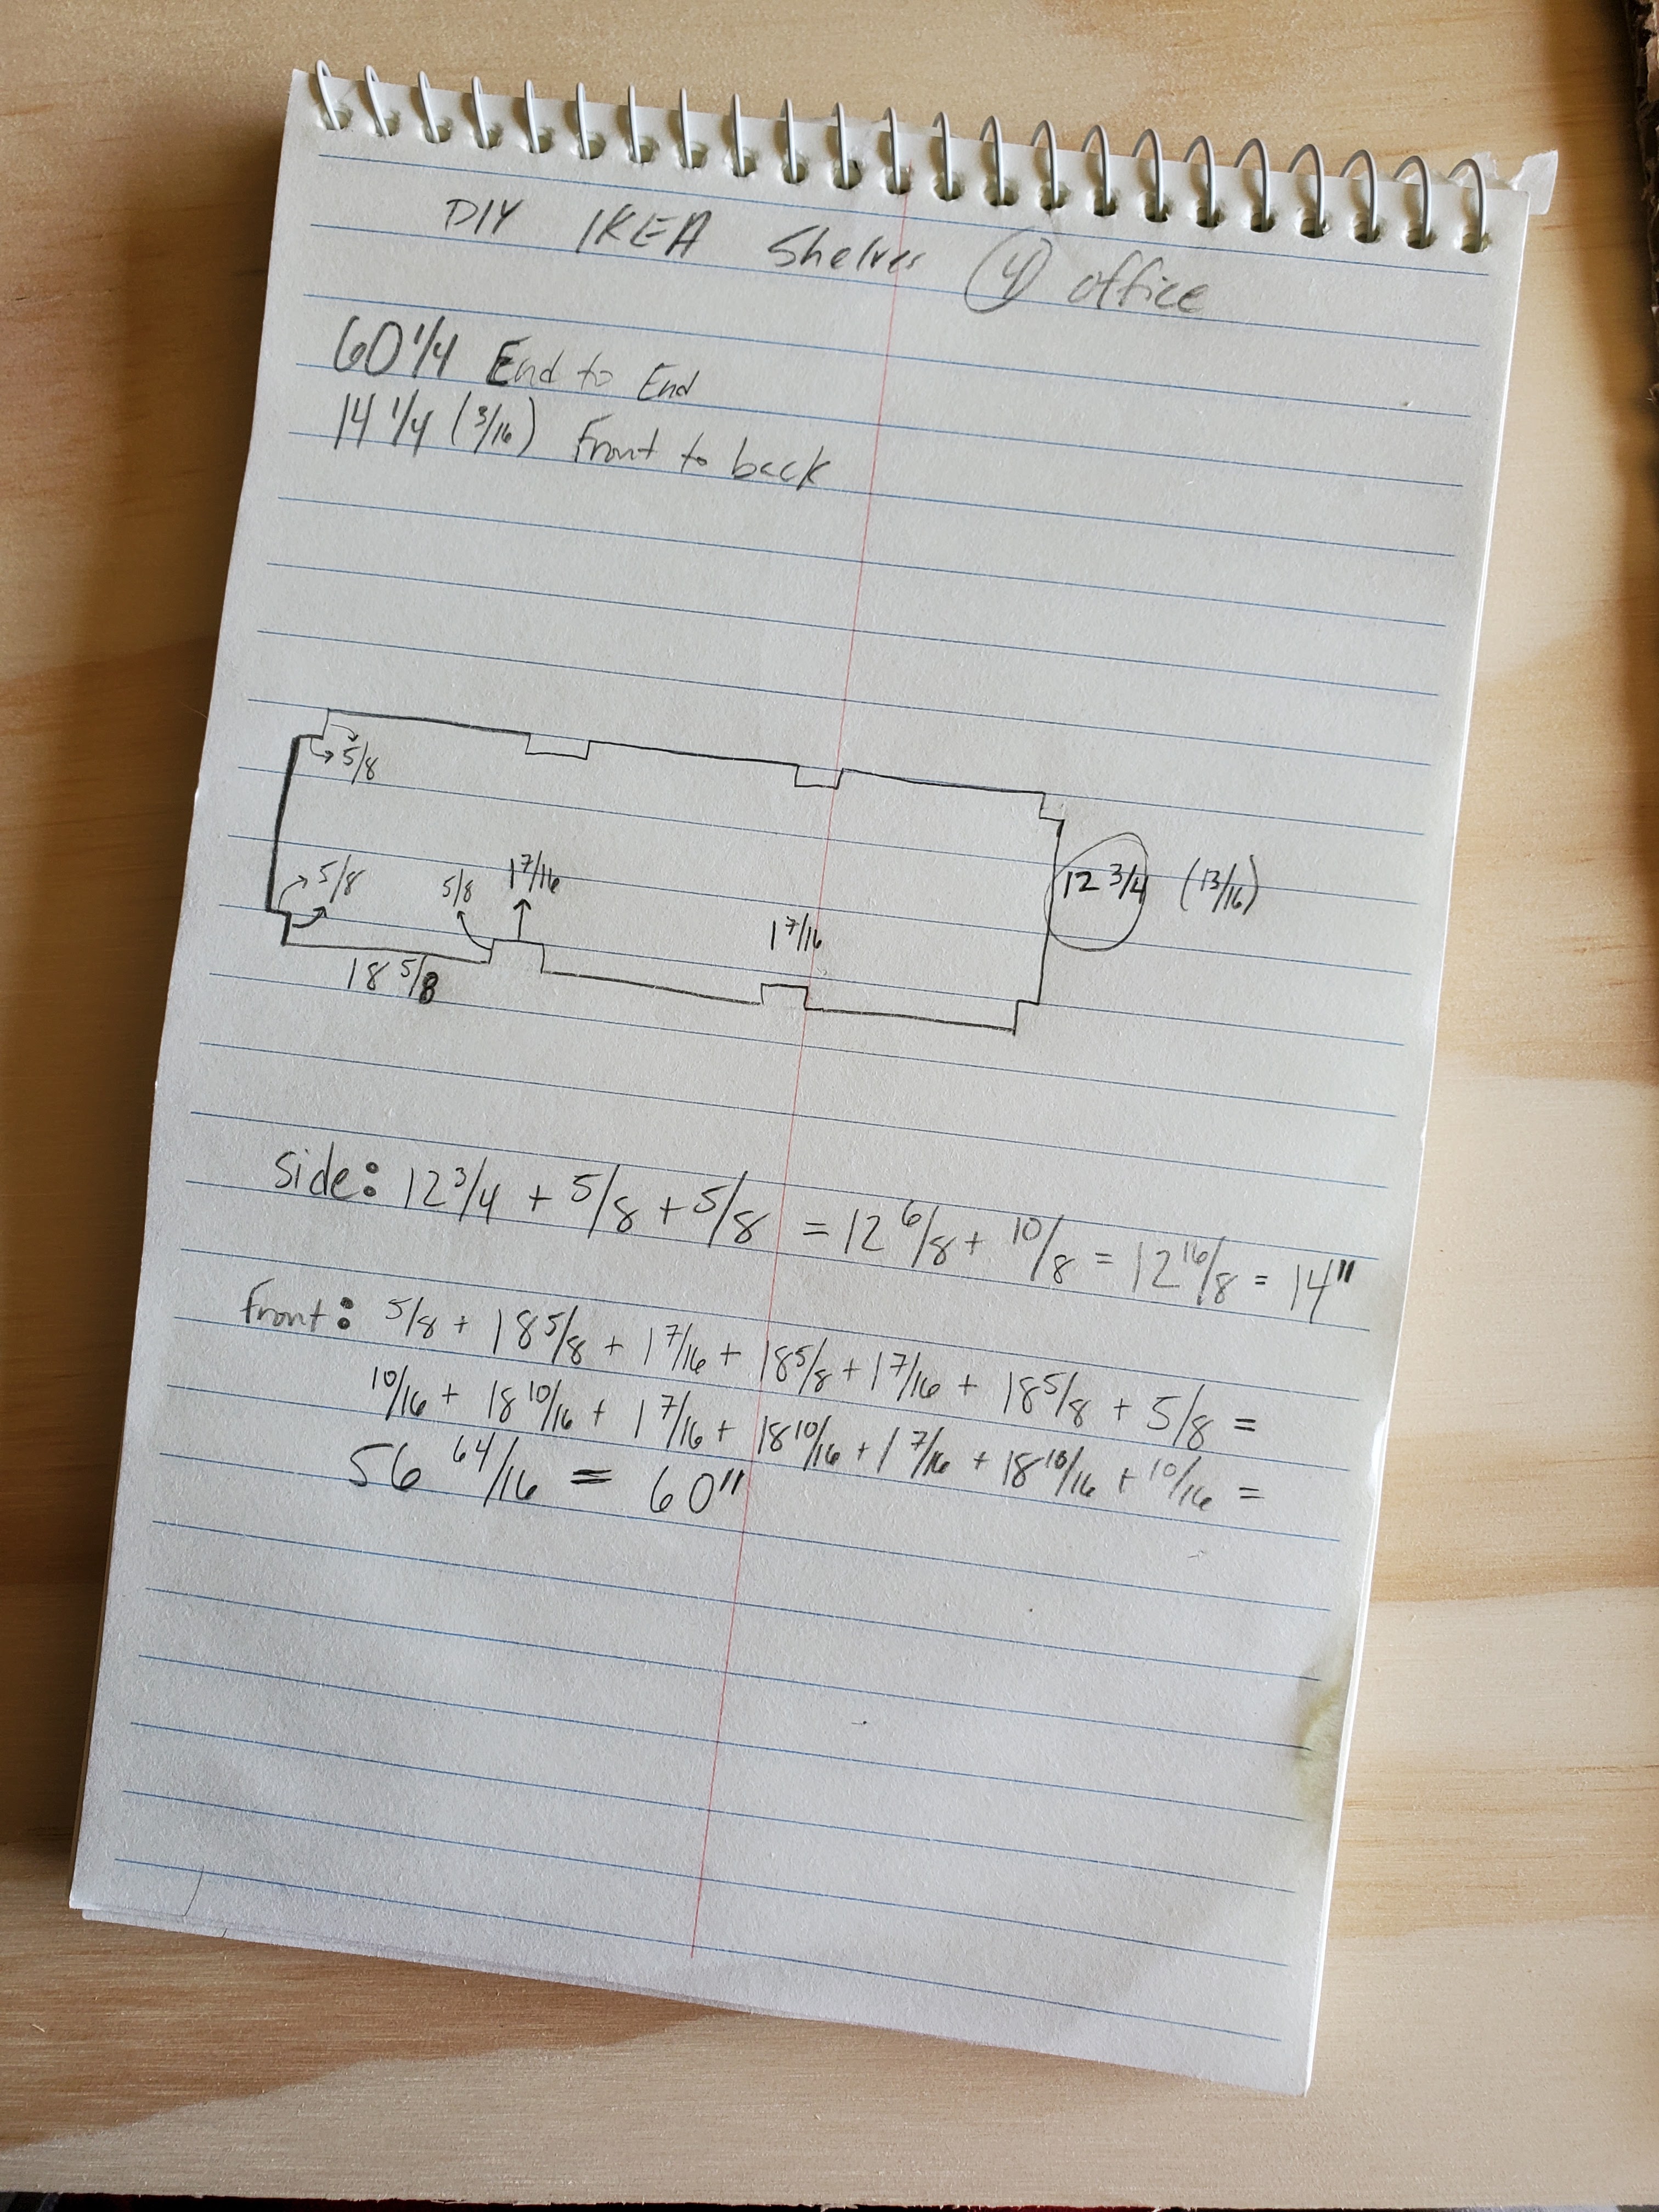 DIY IKEA Shelves (4) office
60 1/4 End to End
14 1/4 (3/16) Front to back
5/8
5/8 5/8 1 7/16
12 3/4 (13/16)
1 7/16
18 5/8
Side: 12 3/4 + 5/8 + 5/8 = 12 6/8 + 10/8 = 12 16/8 = 14"
Front: 5/8 + 18 5/8 + 1 7/16 + 18 5/8 + 1 7/16 + 18 5/8 + 5/8 =
10/16 + 18 10/16 + 1 7/16 + 18 10/16 + 1 7/16 + 18 10/16 + 10/16 =
56 64/16 = 60"